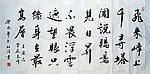 飛來峰上
千尋塔
聞說雞鳴
見日昇
不畏浮雲
遮望眼自
緣身在最
高層